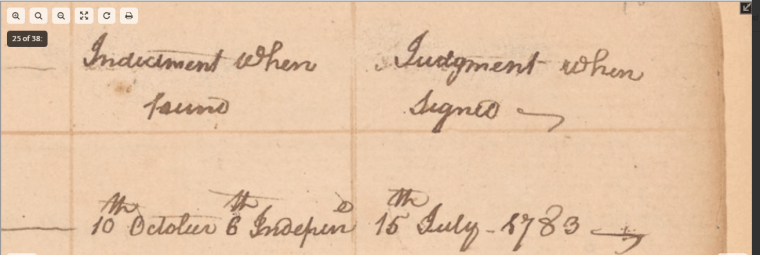 25 of 38:
Indictment when
found
Judgment when
signed
10th October 6th Independ
15th July - 1783